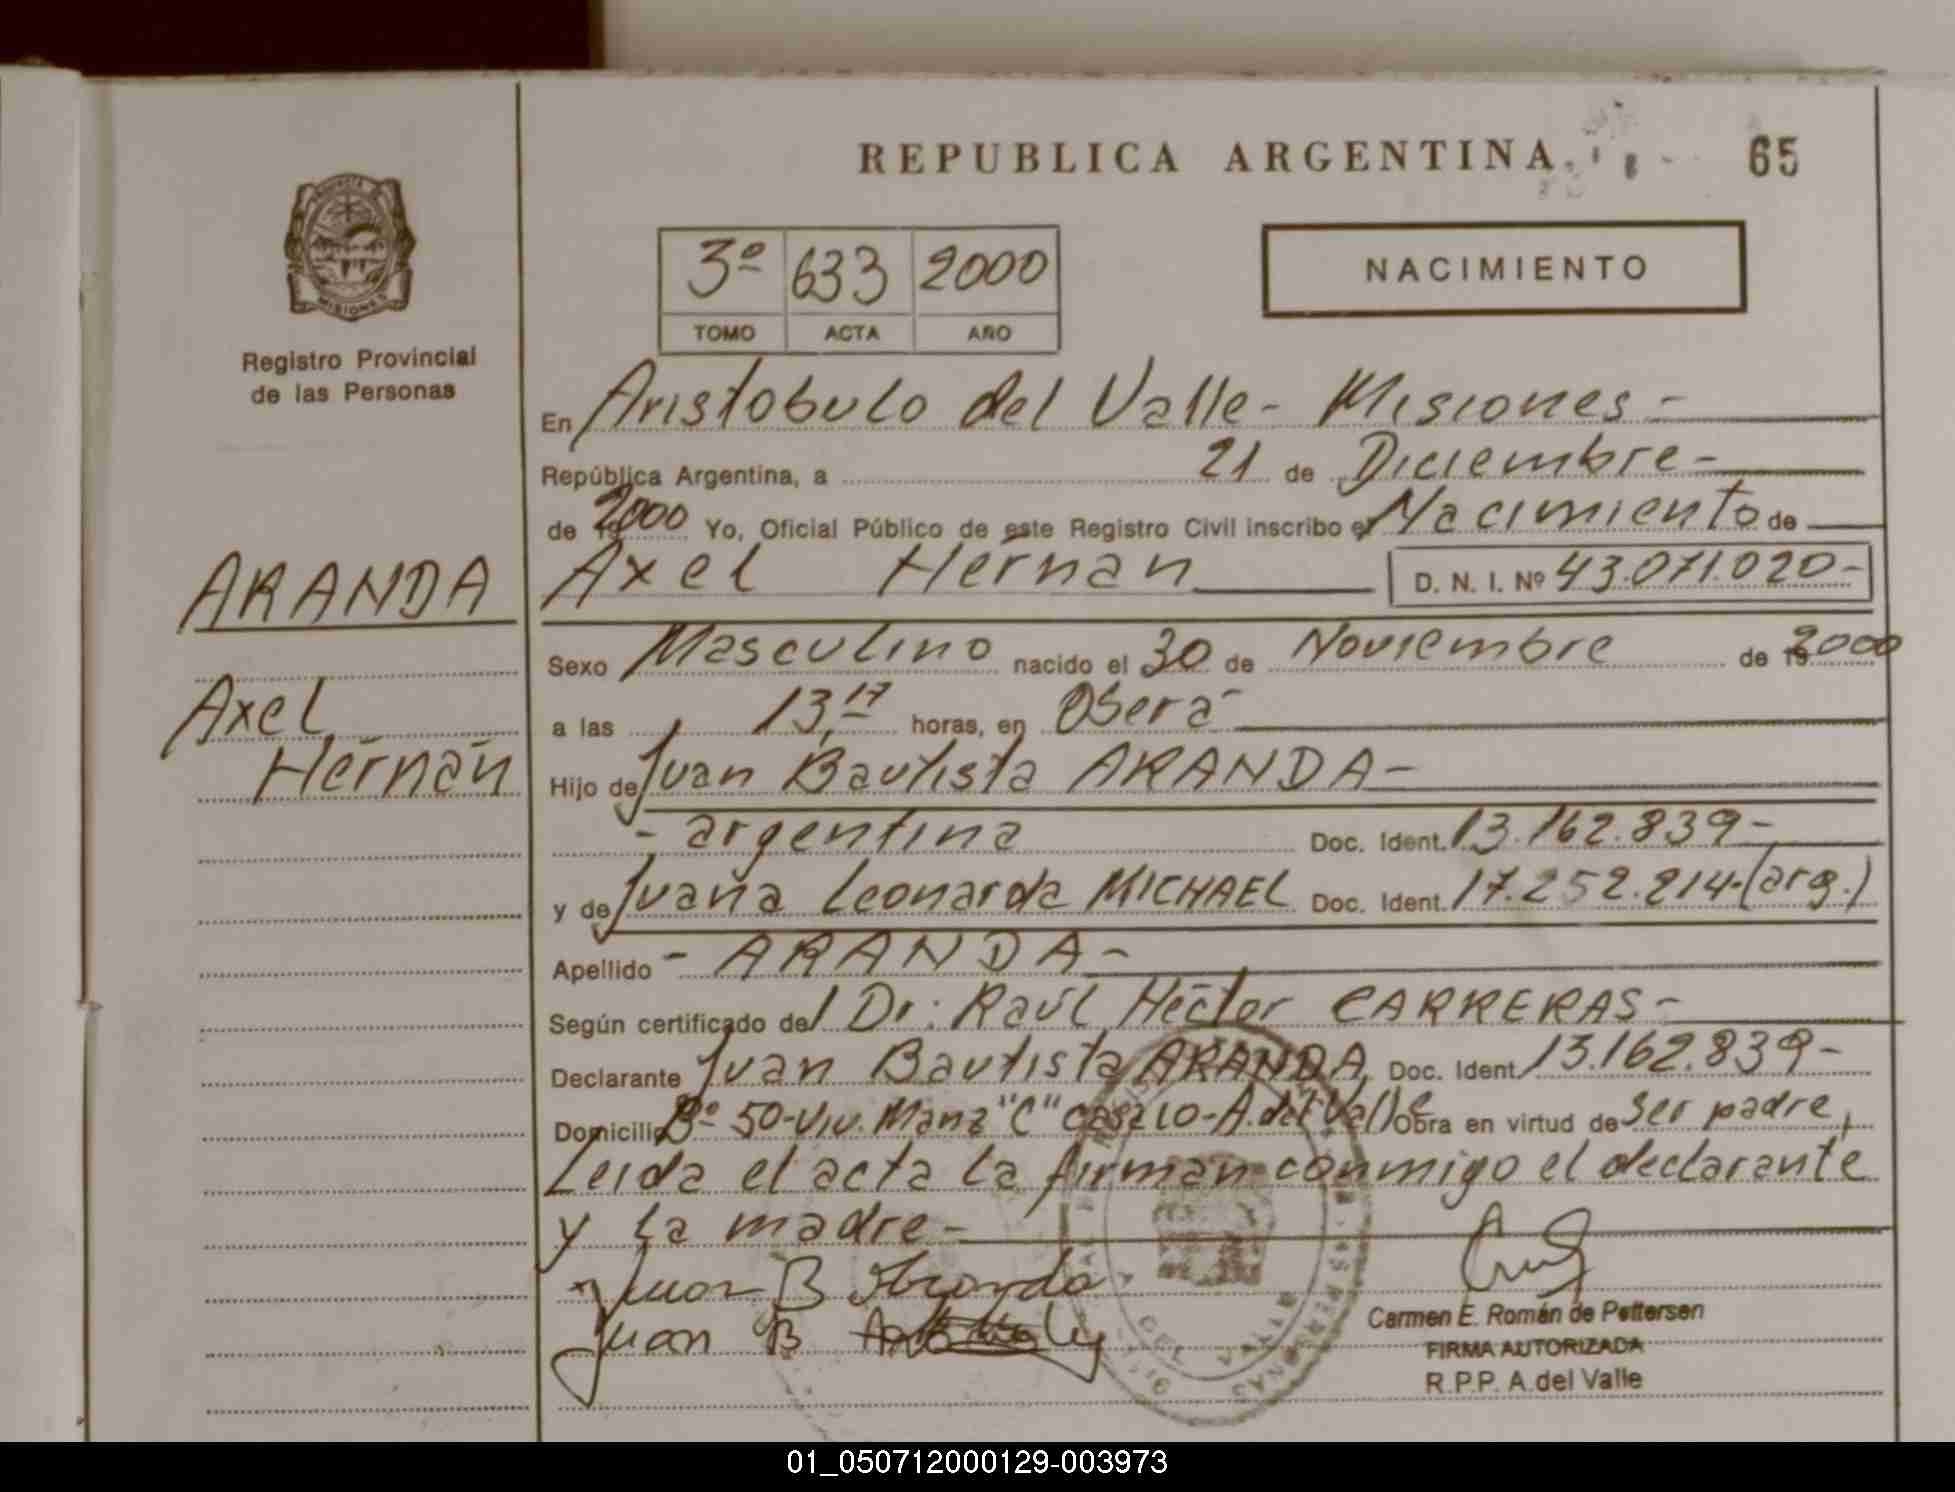 REPUBLICA ARGENTINA
65
MISIONES
Registro Provincial
de las Personas
3º 633 2000
TOMO ACTA AÑO
NACIMIENTO
En Aristobulo del Valle- Misiones-
República Argentina, a 21 de Diciembre-
de 2000 Yo, Oficial Público de este Registro Civil inscribo el Nacimiento de
ARANDA
Axel Hernán D. N. I. Nº 43.071.020-
Sexo Masculino nacido el 30 de Noviembre de 2000
Axel
Hernán
a las 13,17 horas, en Oberá-
Hijo de Juan Bautista ARANDA-
- argentina Doc. Ident. 13.162.839-
y de Juana Leonarda MICHAEL Doc. Ident. 17.252.214-(arg.)
Apellido - ARANDA-
Según certificado del Dr: Raúl Héctor CARRERAS-
Declarante Juan Bautista ARANDA Doc. Ident. 13.162.839-
Domicilio Bº 50-Viv. Manz "C" casa 10-A. del Valle Obra en virtud de Ser padre,
Leida el acta la firman conmigo el declarante
y la madre-
Juan B Aranda
Juan B
Carmen E. Román de Pettersen
FIRMA AUTORIZADA
R.P.P. A.del Valle
01_050712000129-003973